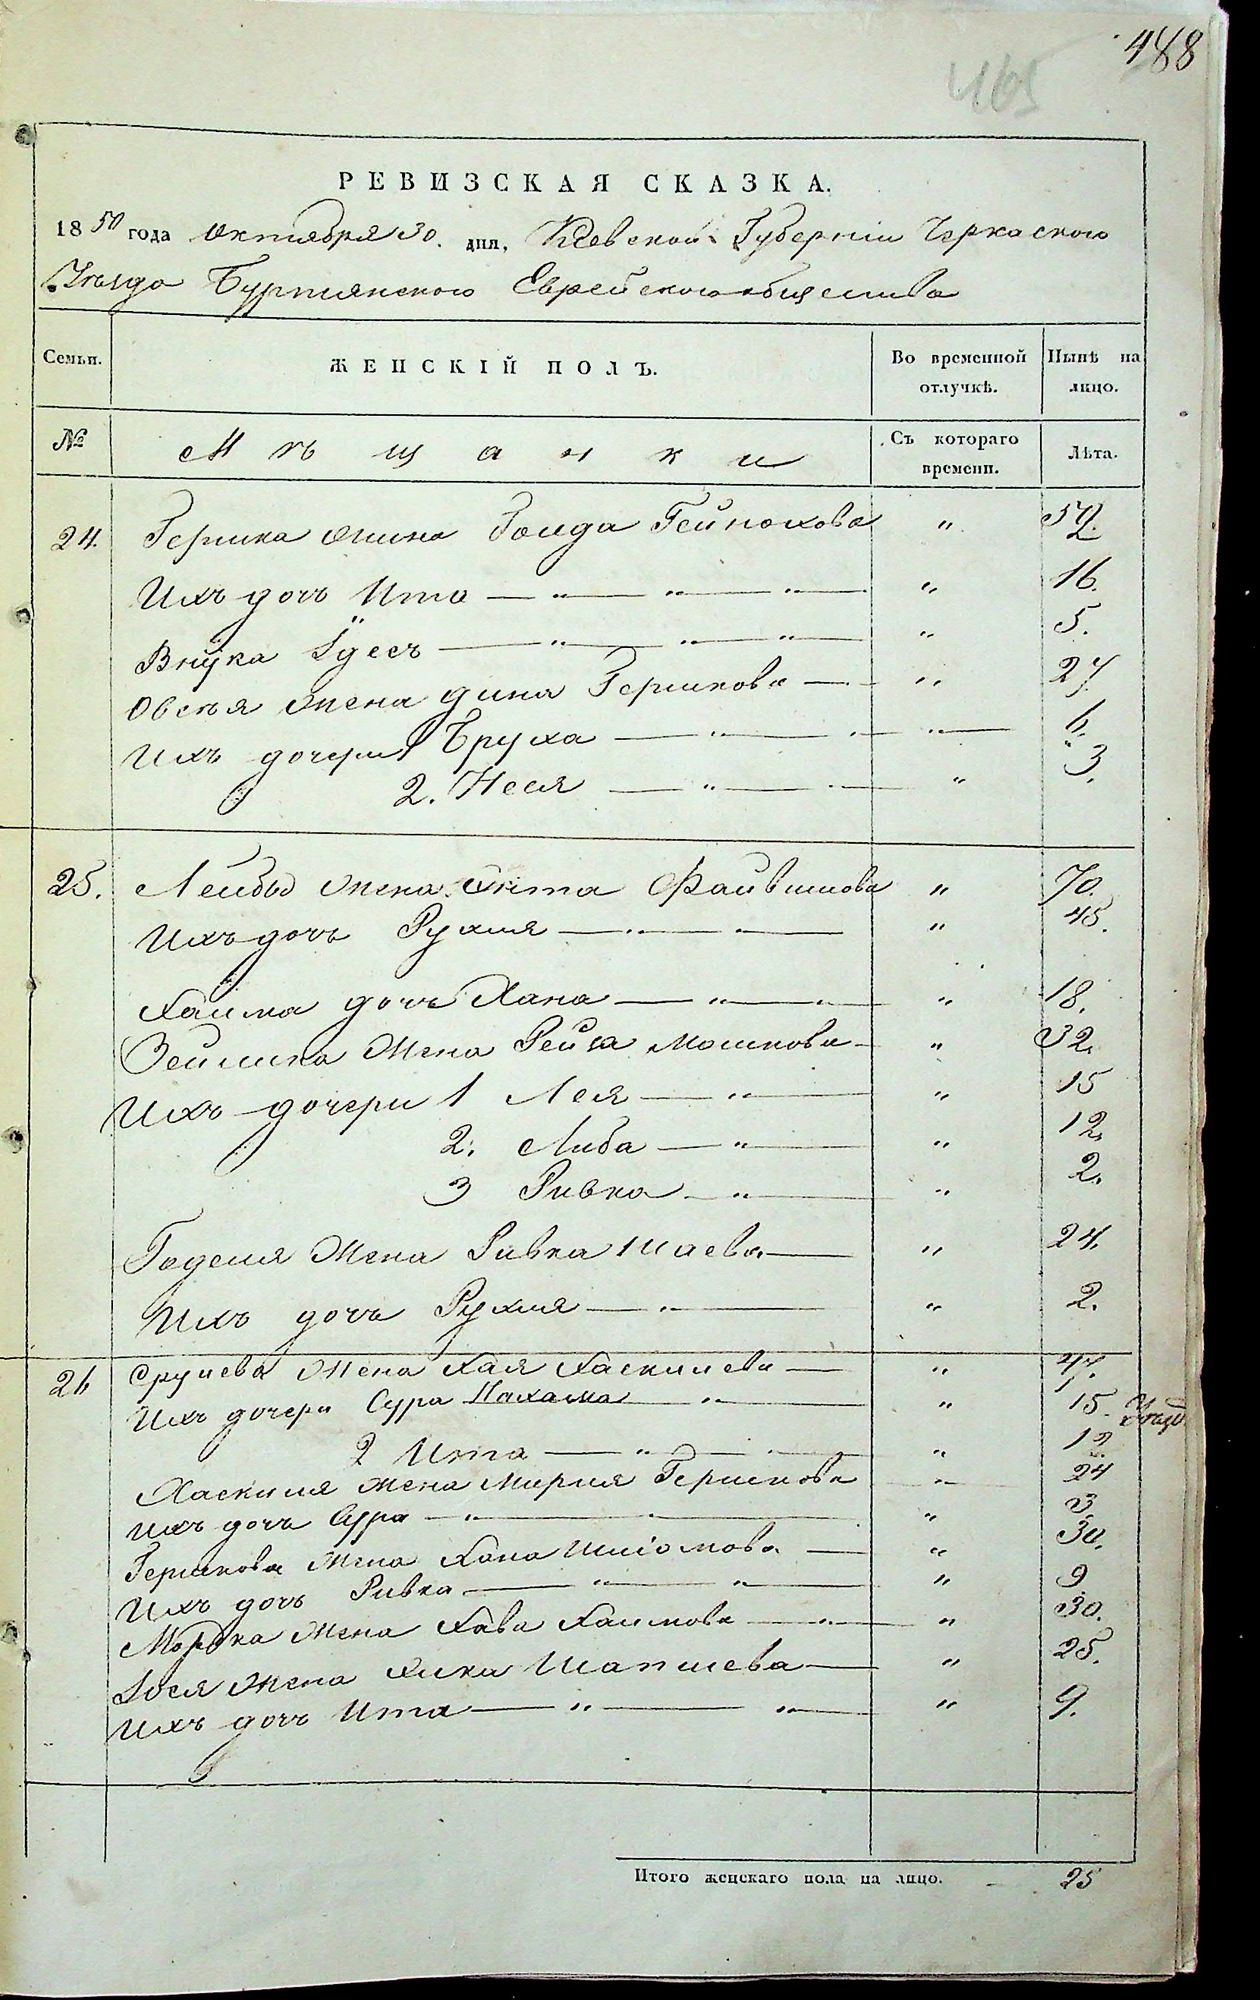 488
465
РЕВИЗСКАЯ СКАЗКА.
1850 года Октября 30. дня, Киевской Губерніи Черкаского
Уезда Буртянского Еврейского общества
Семьи. ЖЕНСКІЙ ПОЛЪ. Во временной отлучкѣ. Нынѣ на лицо.
№ Мѣщанки Съ котораго времени. Лѣта.
24. Гершка жена Голда Гейнохова " 52.
Ихъ дочь Ита — " — " — " — " 16.
Внука Удесъ — " — " — " — " 5.
Овсѣя жена Дина Гершкова — " 27.
Ихъ дочери 1 Бруха — " — " — " — 6.
2. Неся — " — " 3.
25. Лейбы жена Файвишова " 70.
Ихъ дочь Рухля — " — " — " 45.
Хаима дочь Хана — " — " — " 18.
Зейлика жена Рейза Мошкова — " 32.
Ихъ дочери 1 Лея — " — " 15
2. Либа — " — " 12.
3 Ривка — " — " 2.
Геделя жена Ривка Шаева — " 24.
Ихъ дочь Рухля — " — " 2.
26 Срулева жена Хая Хаскилева — " 47.
Ихъ дочери Сура Нахама — " — " 15.
2 Ита — " — " 12.
Хаскиля жена Мирия Гершкова " 24
Ихъ дочь Сура — " — " 3.
Гершкова жена Хана Шліомова — " 30.
Ихъ дочь Ривка — " — " — " 9
Морька жена Хава Хаимова — " — " 30.
Іося жена Шапшева — " 25.
Ихъ дочь Ита — " — " — " 9.
Итого женскаго пола на лицо. — 25